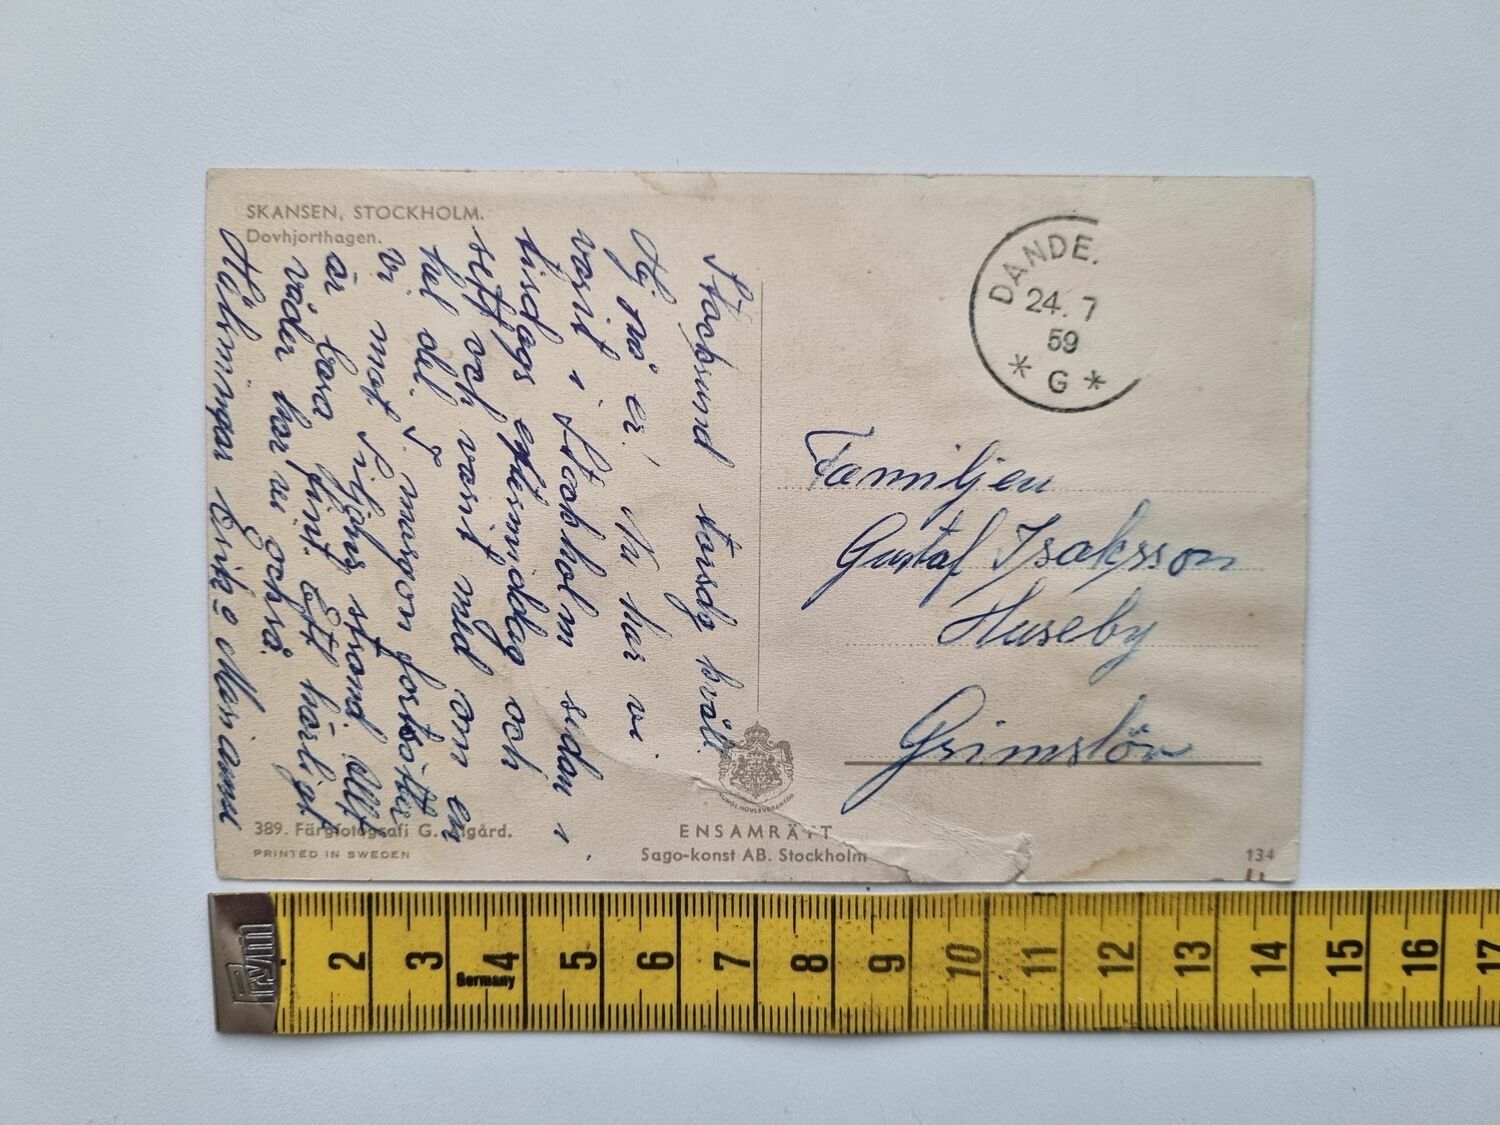 SKANSEN, STOCKHOLM.
Dovhjorthagen.
Stocksund torsdg kväll.
Hej på er! Nu har vi
varit i Stockholm sedan i
tisdags eftermiddag och
sett och varit med om en
hel del. I morgon fortsätter
vi mot Siljans strand. Allt
är bara fint. Ett härligt
väder har vi också.
Hälsningar Erik o Marianne
389. Färgfotografi G. Algård.
PRINTED IN SWEDEN
KUNGL. HOVLEVERANTÖR
ENSAMRÄTT
Sago-konst AB. Stockholm
DANDE.
24. 7
59
* G *
Familjen
Gustaf Isaksson
Huseby
Grimslöv
134
2 3 4 5 6 7 8 9 10 11 12 13 14 15 16 17
Germany